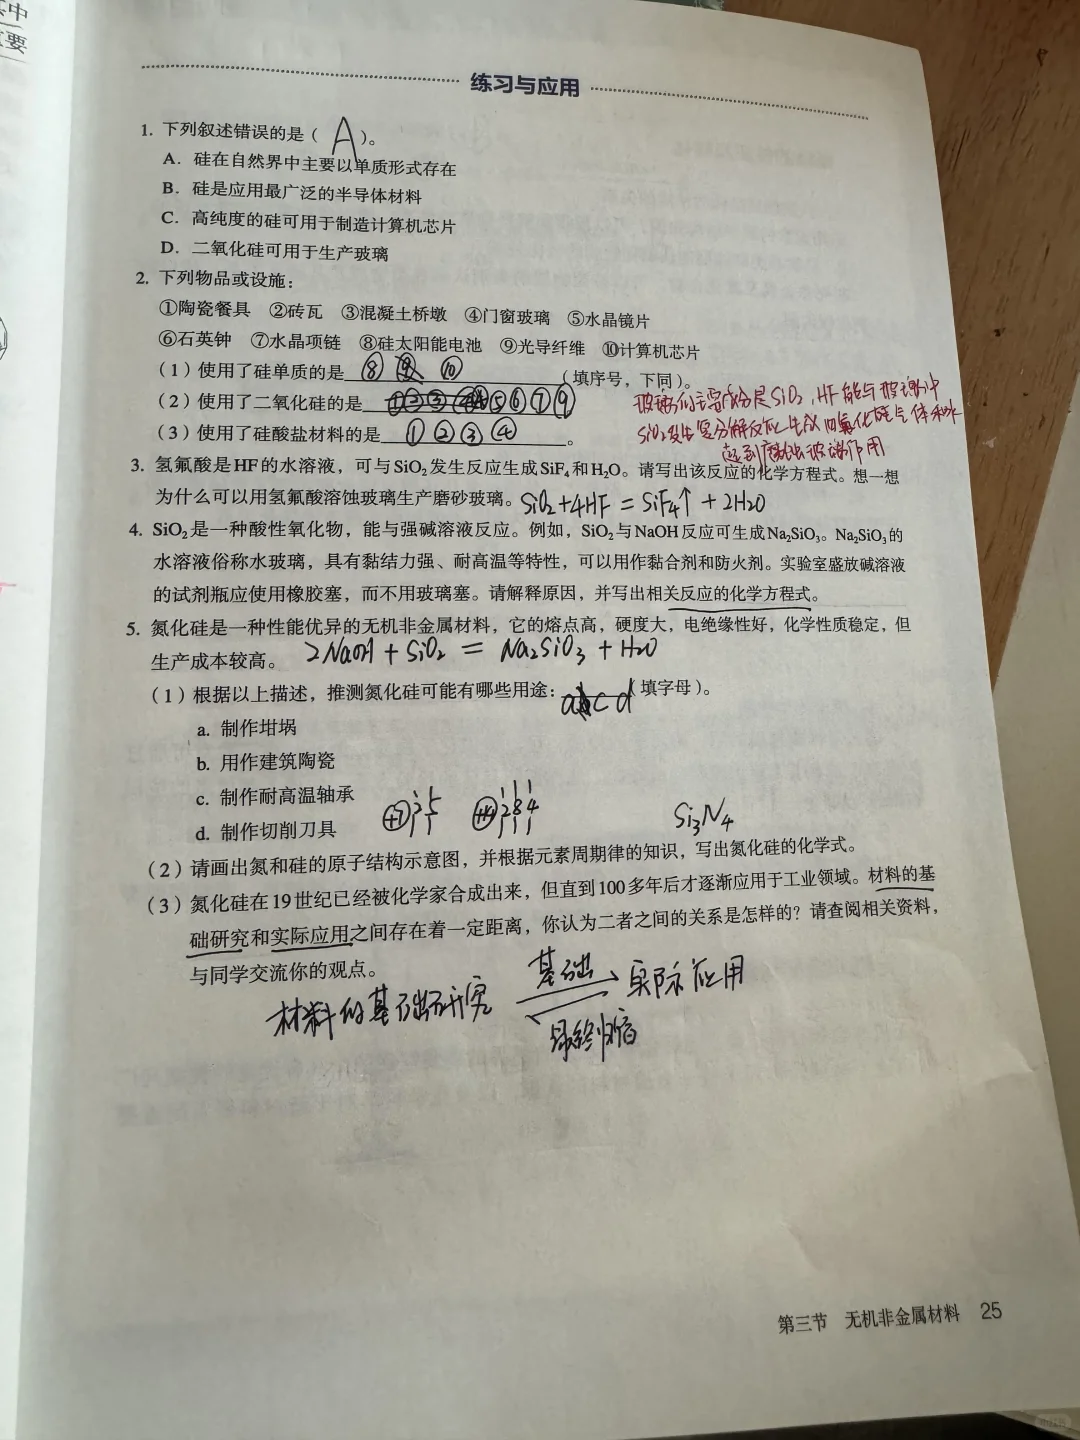 其中
重要
练习与应用
1. 下列叙述错误的是( A )。
A. 硅在自然界中主要以单质形式存在
B. 硅是应用最广泛的半导体材料
C. 高纯度的硅可用于制造计算机芯片
D. 二氧化硅可用于生产玻璃
2. 下列物品或设施：
①陶瓷餐具 ②砖瓦 ③混凝土桥墩 ④门窗玻璃 ⑤水晶镜片
⑥石英钟 ⑦水晶项链 ⑧硅太阳能电池 ⑨光导纤维 ⑩计算机芯片
(1)使用了硅单质的是 ⑧ ⑩ (填序号，下同)。
(2)使用了二氧化硅的是 ⑤⑥⑦⑨
(3)使用了硅酸盐材料的是 ① ② ③ ④ 。
玻璃的主要成分是SiO₂，HF能与玻璃中
SiO₂发生复分解反应生成四氟化硅气体和水
起到腐蚀玻璃作用
3. 氢氟酸是HF的水溶液，可与SiO₂发生反应生成SiF₄和H₂O。请写出该反应的化学方程式。想一想
为什么可以用氢氟酸溶蚀玻璃生产磨砂玻璃。 SiO₂+4HF=SiF₄↑+2H₂O
4. SiO₂是一种酸性氧化物，能与强碱溶液反应。例如，SiO₂与NaOH反应可生成Na₂SiO₃。Na₂SiO₃的
水溶液俗称水玻璃，具有黏结力强、耐高温等特性，可以用作黏合剂和防火剂。实验室盛放碱溶液
的试剂瓶应使用橡胶塞，而不用玻璃塞。请解释原因，并写出相关反应的化学方程式。
5. 氮化硅是一种性能优异的无机非金属材料，它的熔点高，硬度大，电绝缘性好，化学性质稳定，但
生产成本较高。 2NaOH+SiO₂=Na₂SiO₃+H₂O
(1)根据以上描述，推测氮化硅可能有哪些用途： a c d (填字母)。
a. 制作坩埚
b. 用作建筑陶瓷
c. 制作耐高温轴承
d. 制作切削刀具
+7 2 5 +14 2 8 4 Si₃N₄
(2)请画出氮和硅的原子结构示意图，并根据元素周期律的知识，写出氮化硅的化学式。
(3)氮化硅在19世纪已经被化学家合成出来，但直到100多年后才逐渐应用于工业领域。材料的基
础研究和实际应用之间存在着一定距离，你认为二者之间的关系是怎样的？请查阅相关资料，
与同学交流你的观点。
材料的基础研究 基础 实际应用
最终归宿
第三节 无机非金属材料 25
小红书